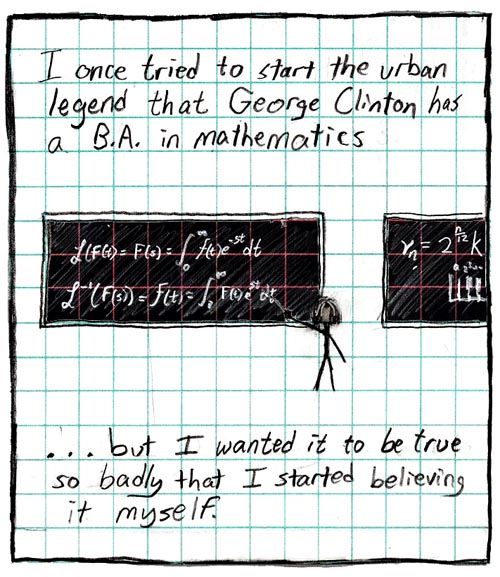 I once tried to start the urban
legend that George Clinton has
a B.A. in mathematics
ℒ(F(t)) = F(s) = ∫₀^∞ f(t)e^-st dt
ℒ⁻¹(F(s)) = f(t) = ∫ F(t)e^st dt
rₙ = 2^(n/12) k
. . . but I wanted it to be true
so badly that I started believing
it myself.